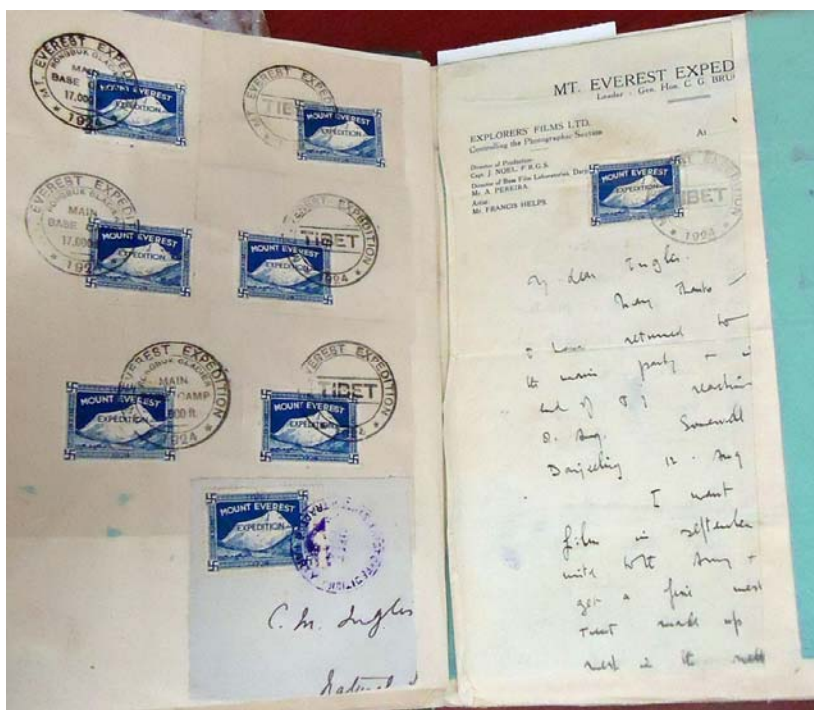 MT. EVEREST EXPEDITION
RONGBUK GLACIER
MAIN
BASE
17,000
1924
MOUNT EVEREST
EXPEDITION
EVEREST EXPEDITION
TIBET
1924
MOUNT EVEREST
EXPEDITION
EVEREST EXPEDITION
RONGBUK GLACIER
MAIN
BASE
17,000
1924
MOUNT EVEREST
EXPEDITION
EXPEDITION
TIBET
1924
MOUNT EVEREST
EXPEDITION
EVEREST EXPEDITION
GLACIER
MAIN
CAMP
000 ft.
1924
MOUNT EVEREST
EXPEDITION
EVEREST EXPEDITION
TIBET
1924
MOUNT EVEREST
EXPEDITION
MOUNT EVEREST
EXPEDITION
C. M. Inglis
MT. EVEREST EXPED
Leader - Gen. Hon. C. G. BRU
EXPLORERS' FILMS LTD.
Controlling the Photographic Section
At
Director of Production:
Capt. J. NOEL, F.R.G.S.
Director of Base Film Laboratories, Darj
Mr. A. PEREIRA.
Artist:
Mr. FRANCIS HELPS.
MOUNT EVEREST
EXPEDITION
EXPEDITION
IBET
1924
My dear Inglis.
Many thanks
I have returned to
the main party
end of reaching
8. Aug. Somervell
Darjeeling 12. Aug
I want
film in september
get a fine nest
made up
nest in the